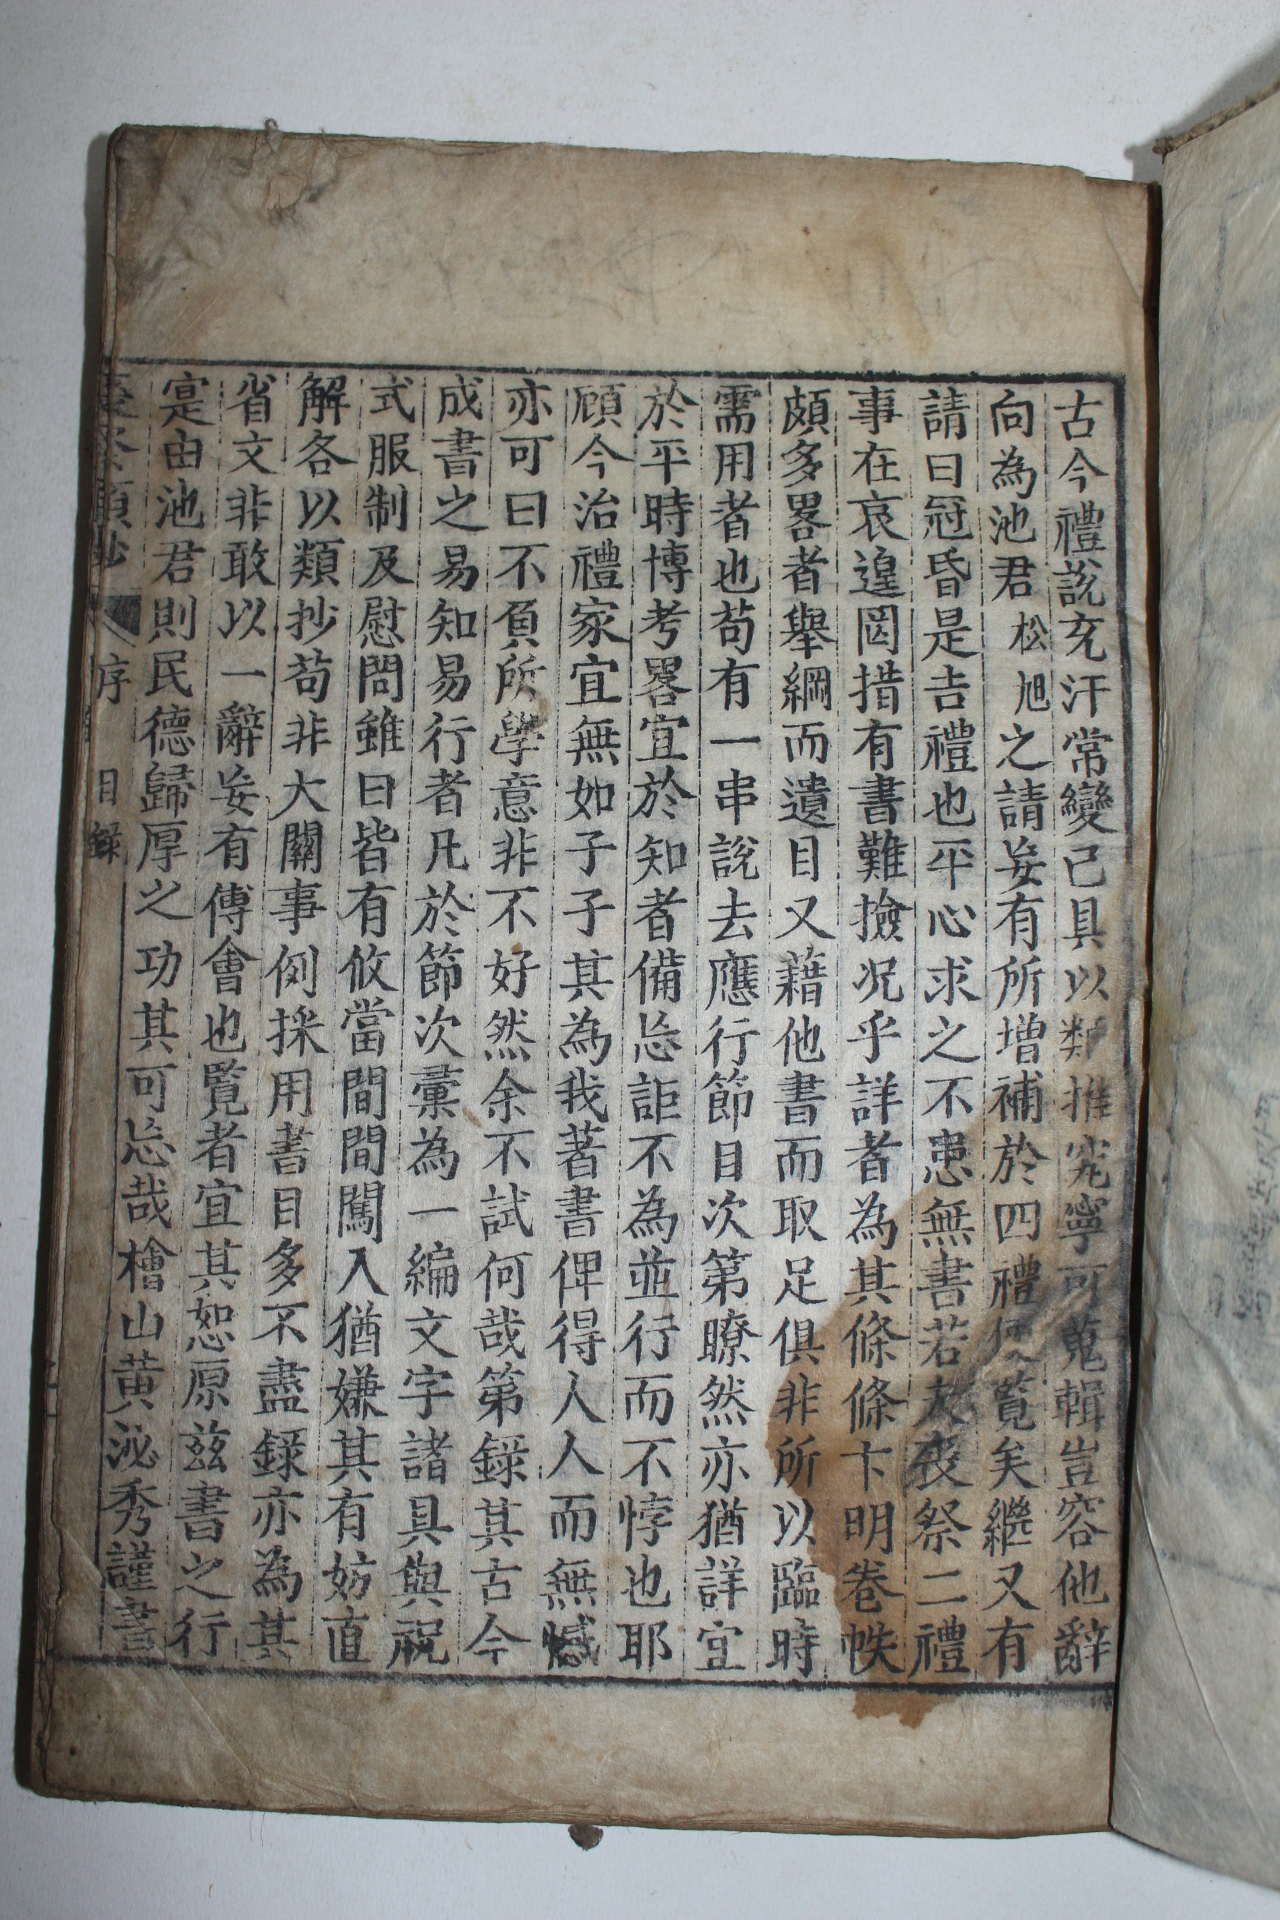 古今禮說充汗常變已具以類推究寧可蒐輯豈容他辭
向為池君松旭之請妄有所增補於四禮便覽矣繼又有
請曰冠昏是吉禮也平心求之不患無書若夫喪祭二禮
事在哀遑罔措有書難撿况乎詳者為其條條卞明卷帙
頗多畧者舉綱而遺目又藉他書而取足俱非所以臨時
需用者也苟有一串說去應行節目次第瞭然亦猶詳宜
於平時博考畧宜於知者備忘詎不為並行而不悖也耶
顧今治禮家宜無如子子其為我著書俾得人人而無憾
亦可曰不負所學意非不好然余不試何哉第錄其古今
成書之易知易行者凡於節次彙為一編文字諸具與祝
式服制及慰問雖曰皆有攸當間間闖入猶嫌其有妨直
解各以類抄苟非大關事例採用書目多不盡錄亦為其
省文非敢以一辭妄有傅會也覽者宜其恕原玆書之行
寔由池君則民德歸厚之功其可忘哉檜山黃泌秀謹書
喪祭類抄 序 目錄